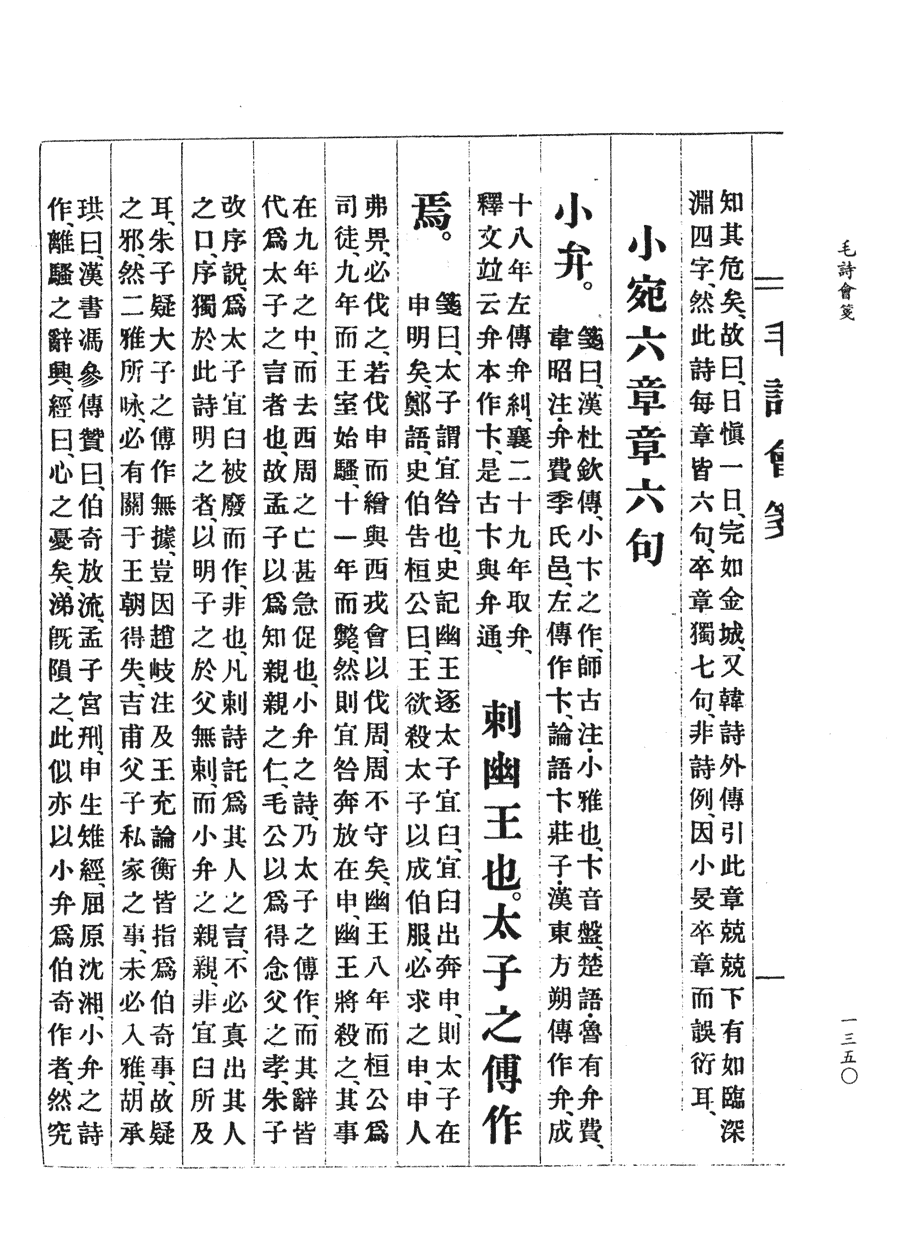 毛詩會箋
一三五〇
毛詩會箋
知其危矣、故曰、日愼一日、完如金城、又韓詩外傳引此章兢兢下有如臨深
淵四字、然此詩每章皆六句、卒章獨七句、非詩例、因小旻卒章而誤衍耳、
小宛六章章六句
小弁。
箋曰、漢杜欽傳、小卞之作、師古注・小雅也、卞音盤、楚語・魯有弁費、
韋昭注・弁費季氏邑、左傳作卞、論語卞莊子・漢東方朔傳作弁、成
十八年左傳弁糾、襄二十九年取弁、
釋文竝云弁本作卞、是古卞與弁通、
刺幽王也。太子之傅作
焉。
箋曰、太子謂宜咎也、史記幽王逐太子宜臼、宜臼出奔申、則太子在
申明矣、鄭語、史伯告桓公曰、王欲殺太子以成伯服、必求之申、申人
弗畀、必伐之、若伐申而繒與西戎會以伐周、周不守矣、幽王八年而桓公爲
司徒、九年而王室始騷、十一年而斃、然則宜咎奔放在申、幽王將殺之、其事
在九年之中、而去西周之亡甚急促也、小弁之詩、乃太子之傅作、而其辭皆
代爲太子之言者也、故孟子以爲知親親之仁、毛公以爲得念父之孝、朱子
改序說、爲太子宜臼被廢而作、非也、凡刺詩託爲其人之言、不必真出其人
之口、序獨於此詩明之者、以明子之於父無刺、而小弁之親親、非宜臼所及
耳、朱子疑大子之傅作無據、豈因趙岐注及王充論衡皆指爲伯奇事、故疑
之邪、然二雅所咏、必有關于王朝得失、吉甫父子私家之事、未必入雅、胡承
珙曰、漢書馮參傳贊曰、伯奇放流、孟子宮刑、申生雉經、屈原沈湘、小弁之詩
作、離騷之辭興、經曰、心之憂矣、涕旣隕之、此似亦以小弁爲伯奇作者、然究